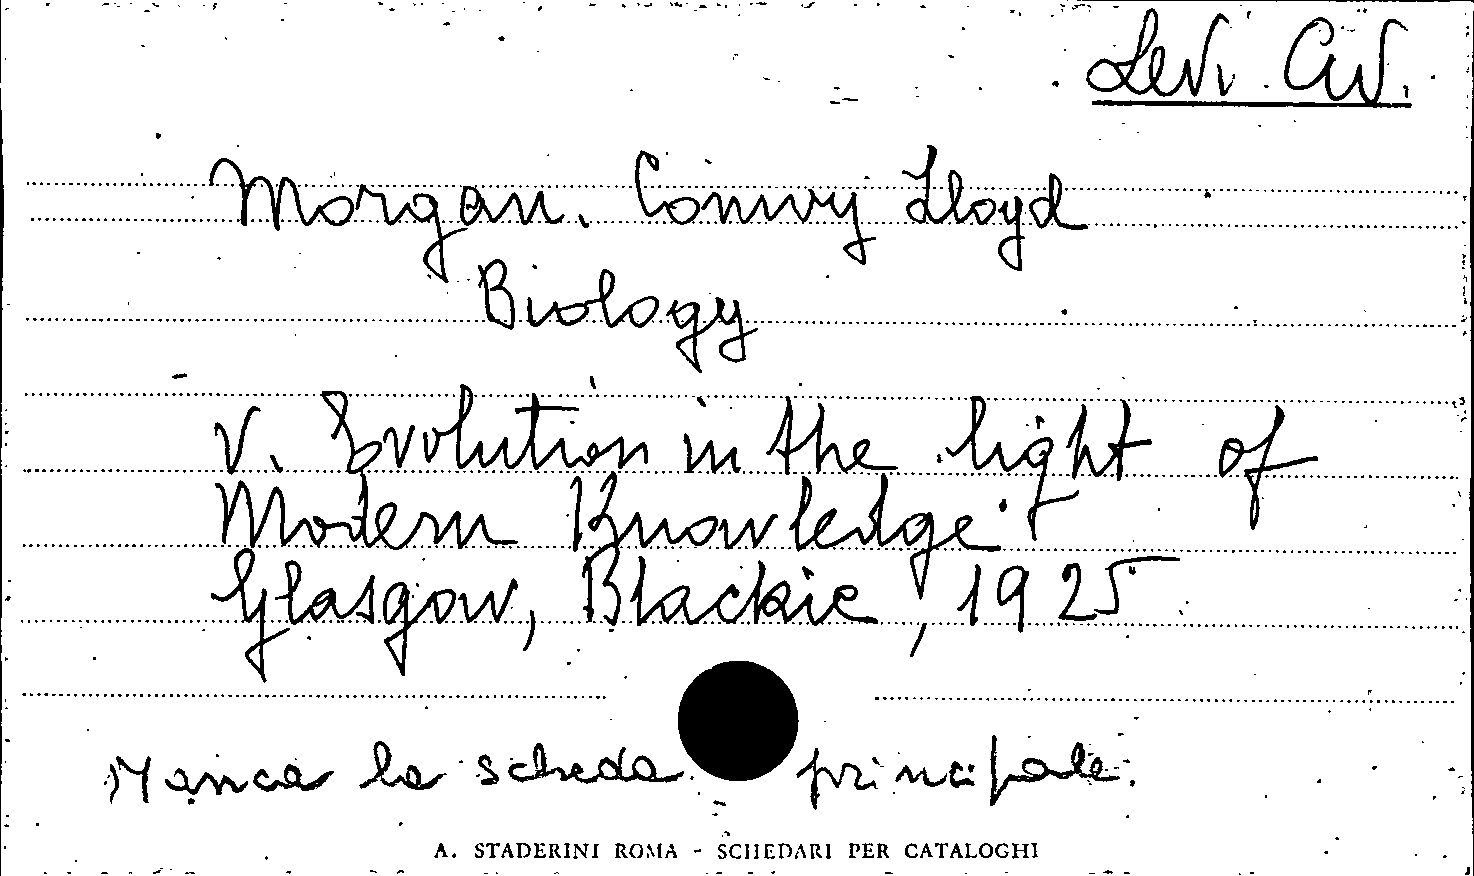 Levi Civ.
Morgan. Conwy Lloyd
Biology
V. Evolution in the light of
Modern Knowledge.
Glasgow, Blackie, 1925
Manca la scheda principale.
A. STADERINI ROMA - SCHEDARI PER CATALOGHI